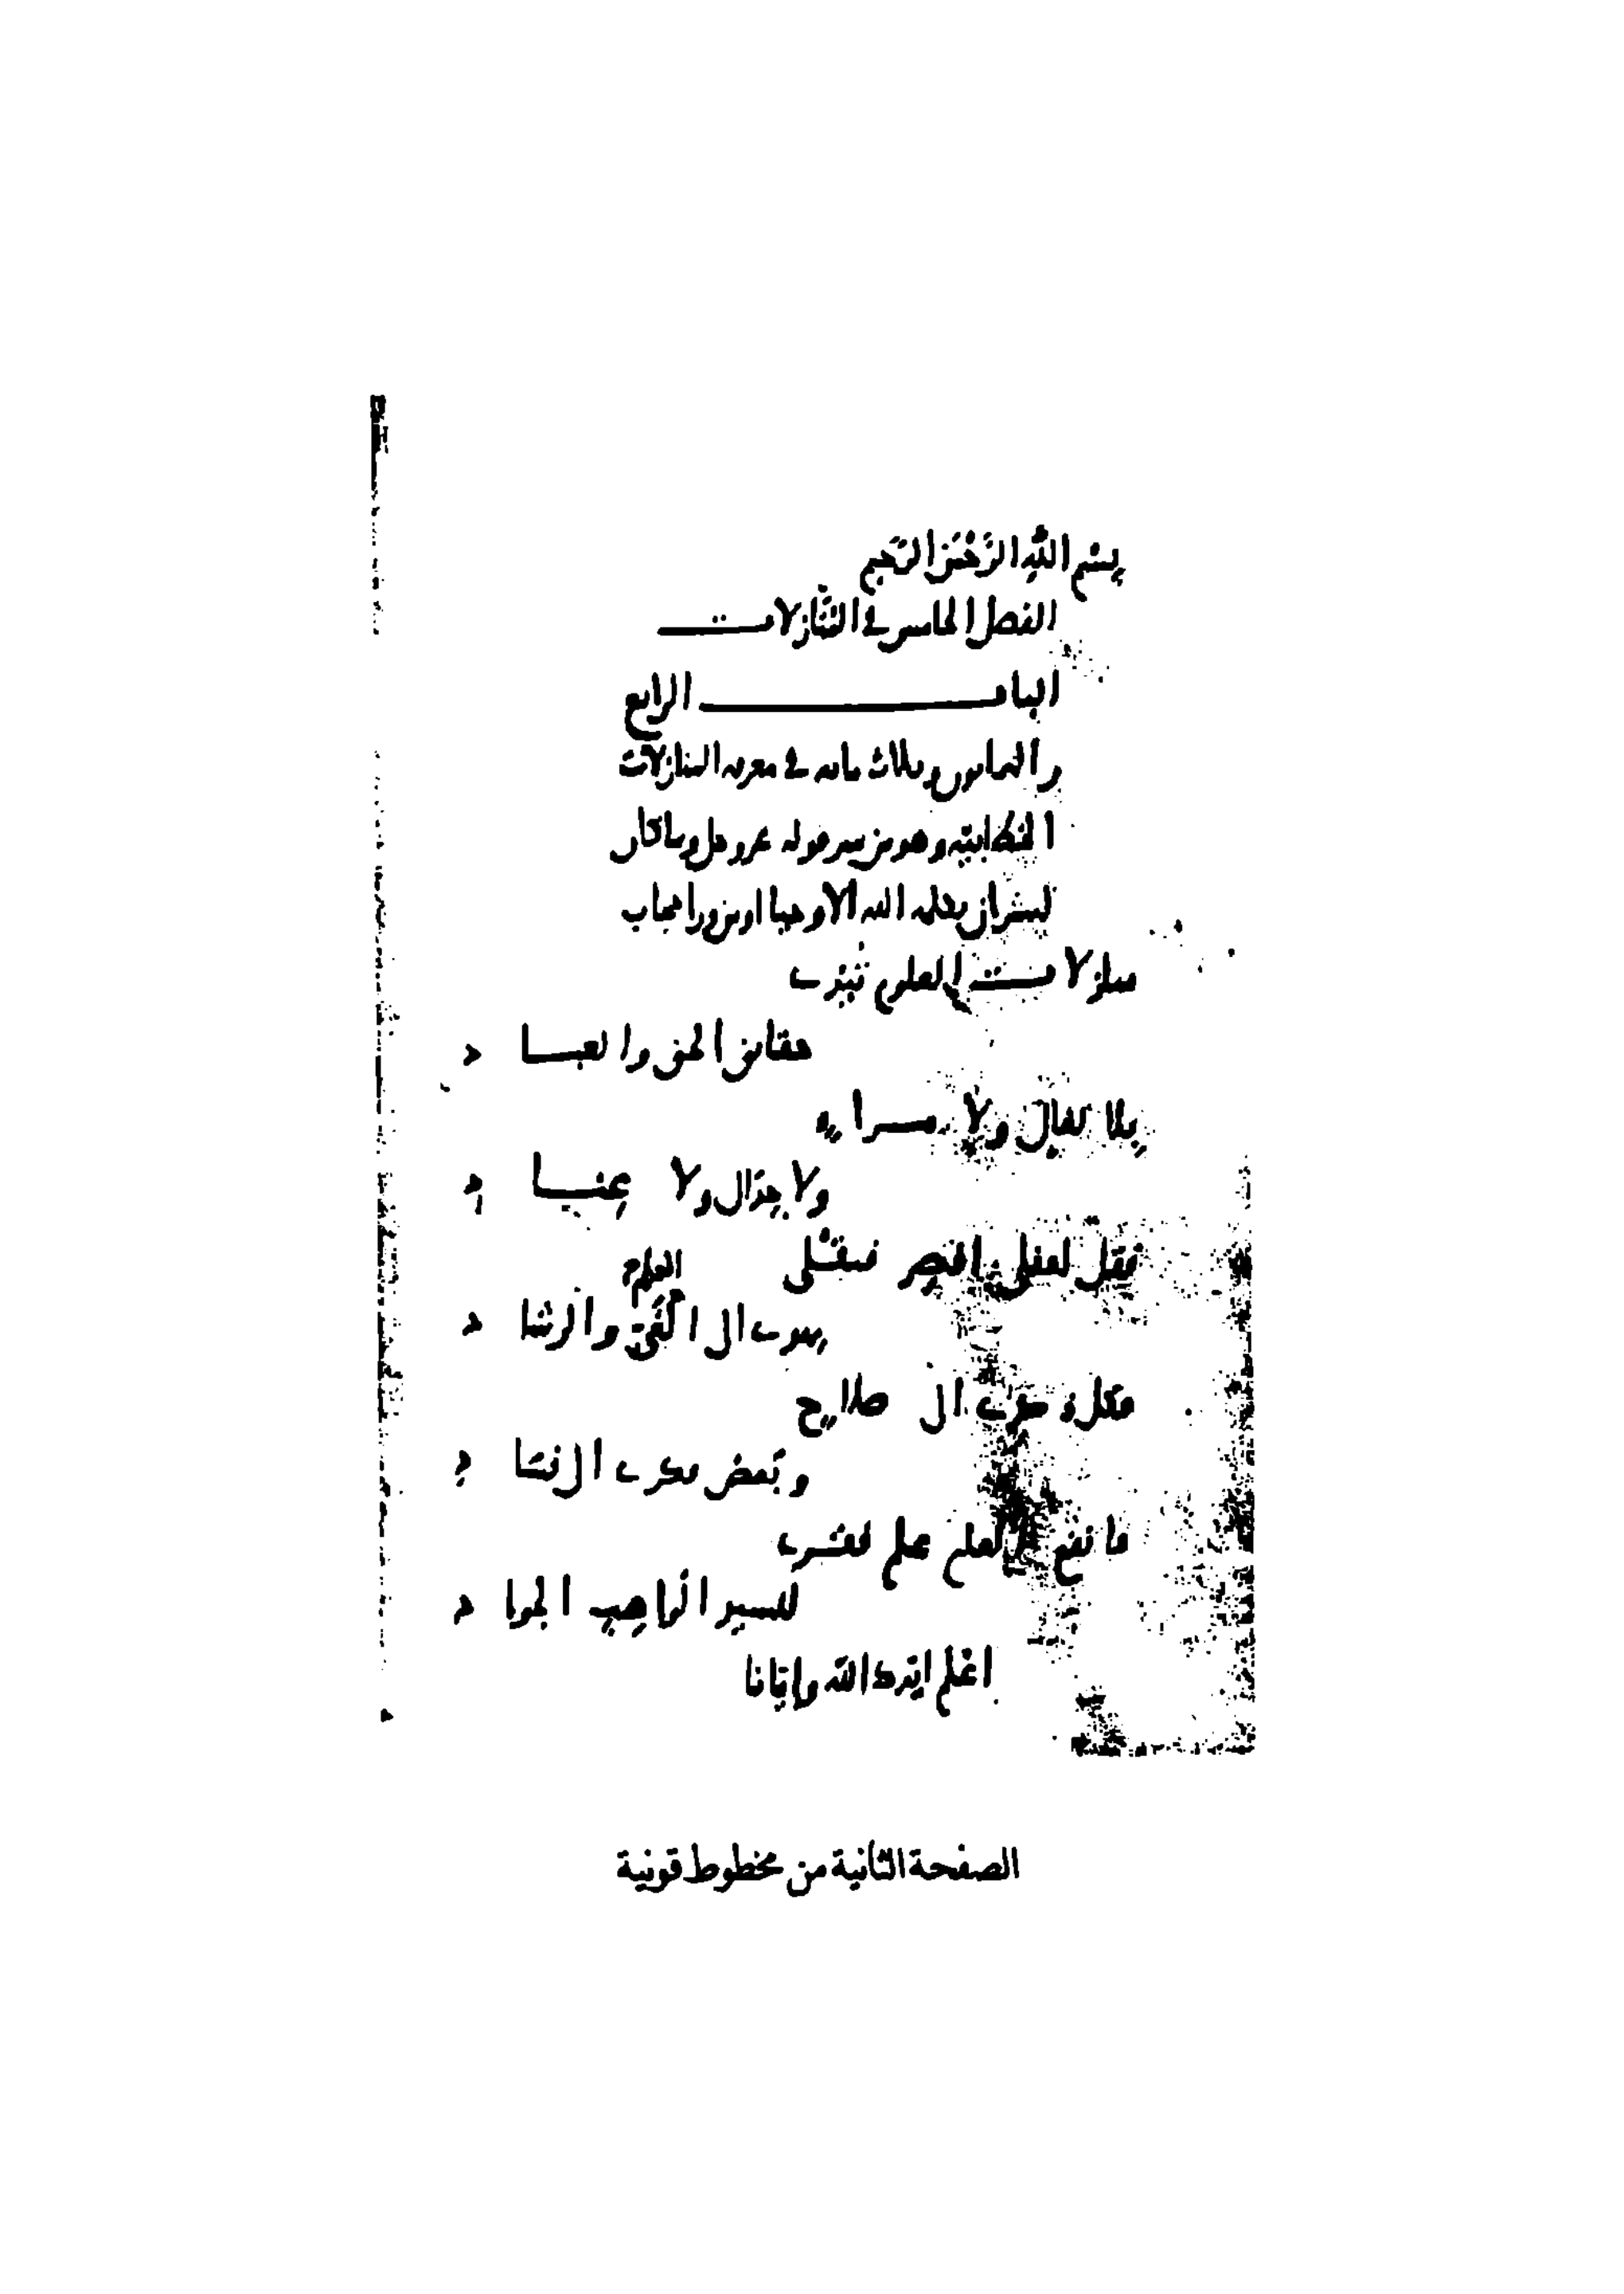 بسم الله الرحمن الرحيم
الفصل الخامس في المنازلات
الباب الرابع
والثمانون وثلاث مائه في معرفه المنازلات
الخطابيه وهو من سر قوله عز وجل وما كان
لبشر ان يكلمه الله الا وحيا او من ورا حجاب
منازلات العلوم تبدي
حقائق الحق والعبا د
بلا محال ولا مرا
ولا جدال ولا عنا د
فقل لعقلي اقصر فعقلي
العلوم
يهوي الى الغي والرشا د
فكل فكر الى صلاح
وبعض فكر الى فسا د
ما نفع العلم علم فقر
للسيد الواهب الجوا د
اعلم ايدك الله وايانا
الصفحة الثانية من مخطوط قونية